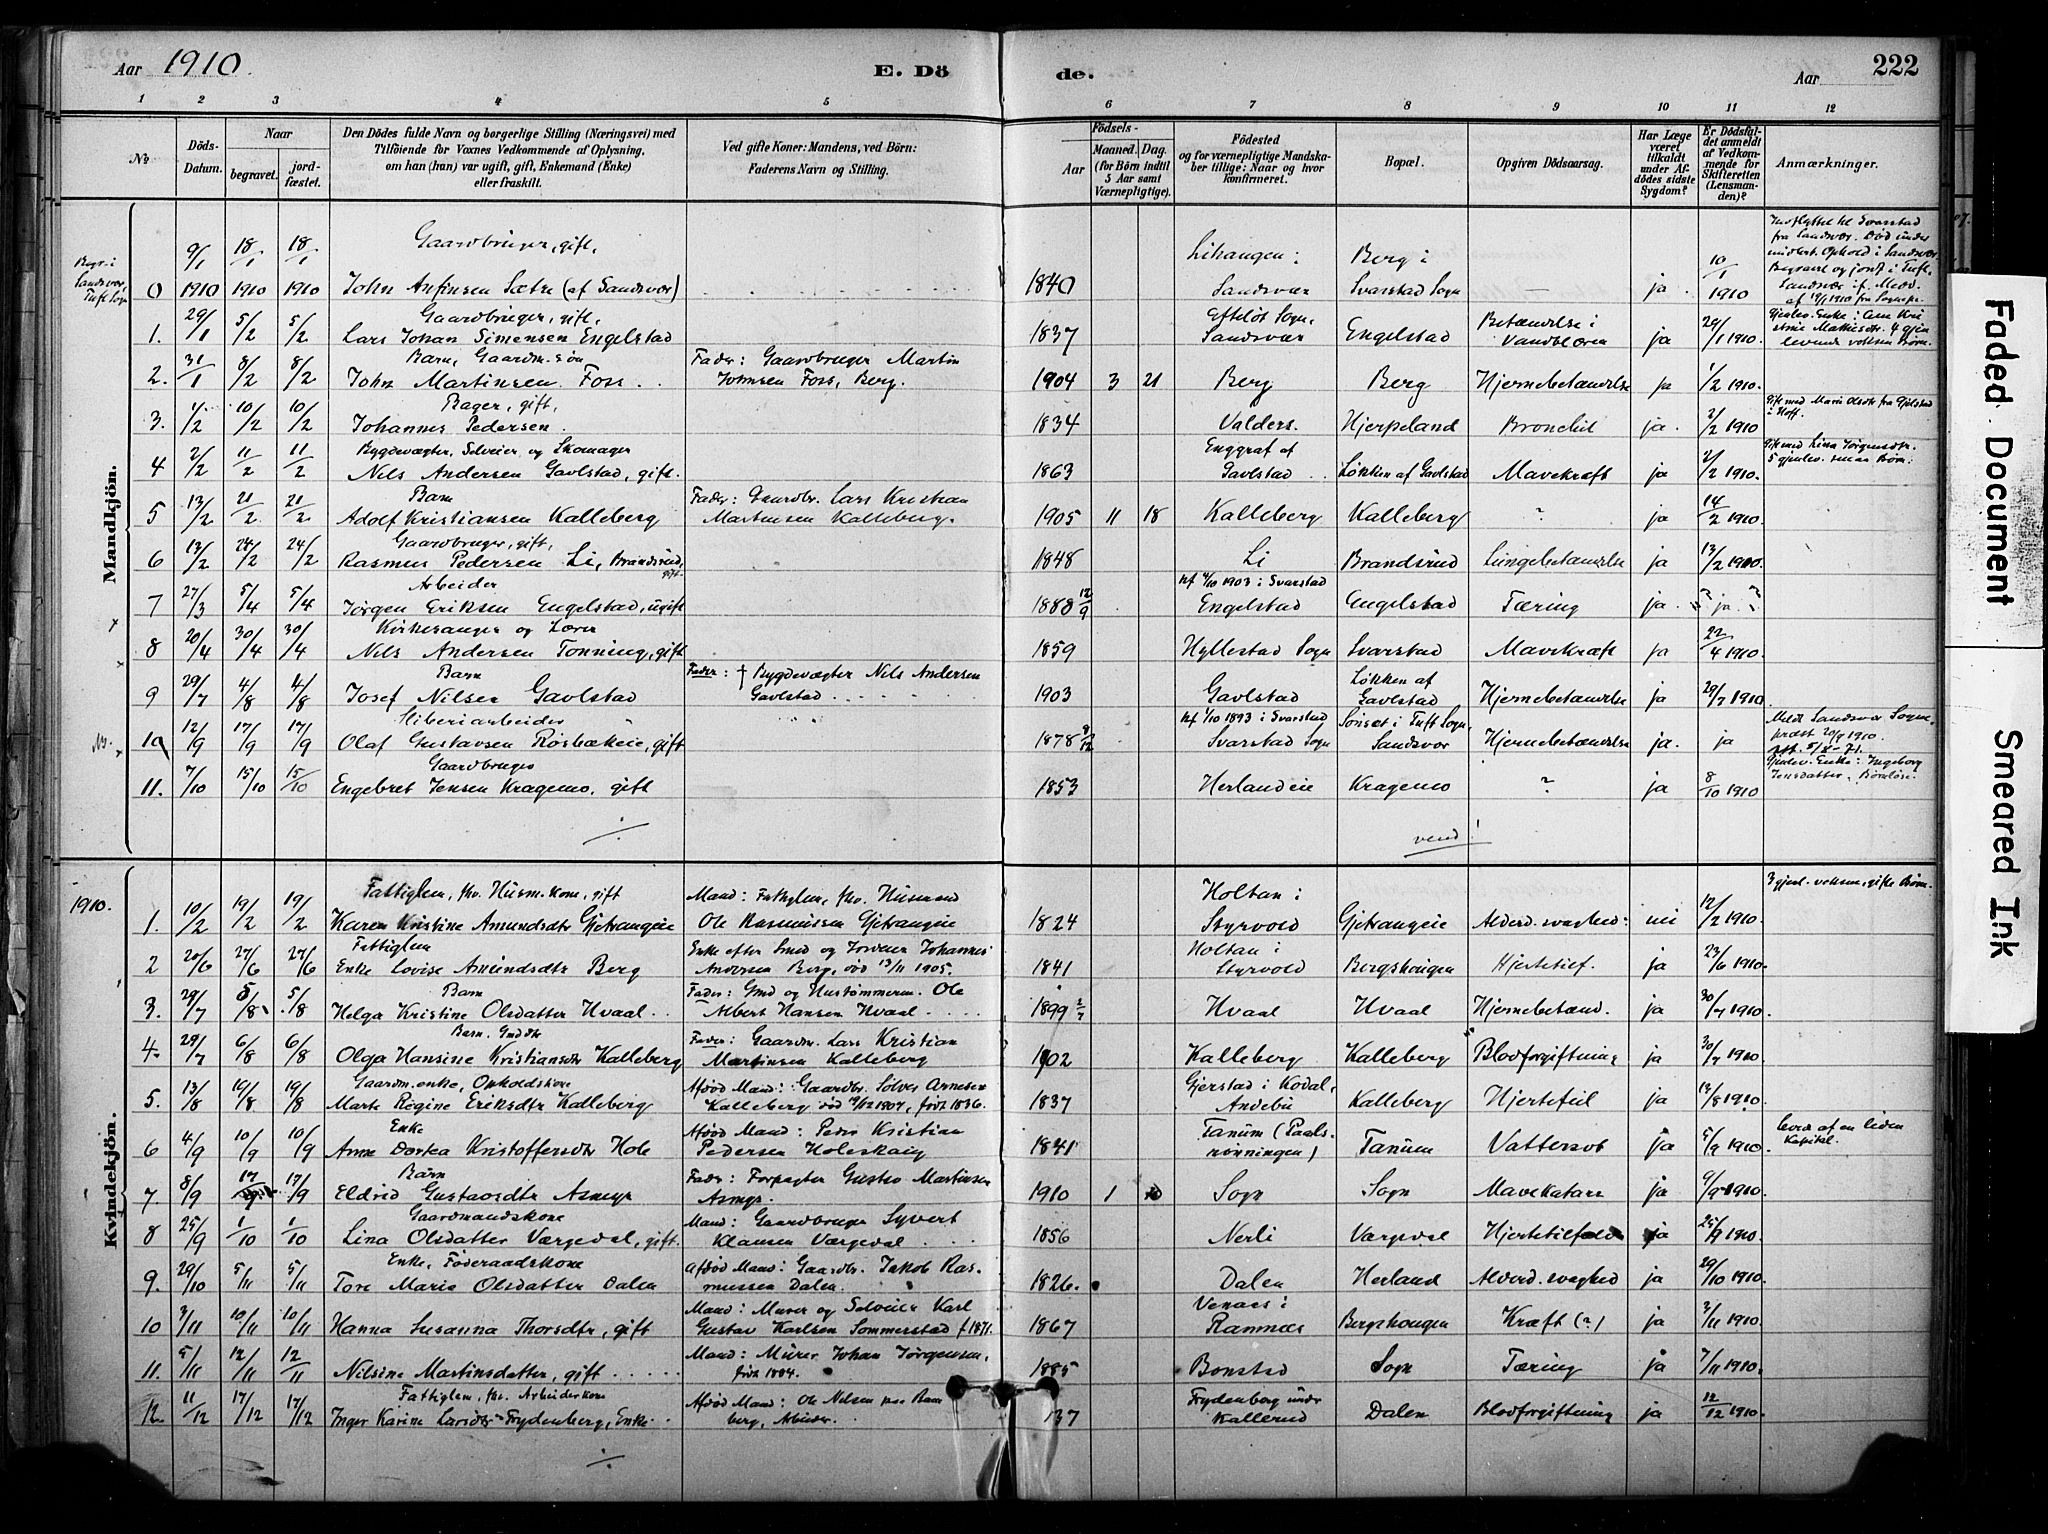 Aar 1910. E. Dö de. Aar 222
1 2 3 4 5 6 7 8 9 10 11 12
No
Döds-Datum.
Naar
begravet.
jord-fæstet.
Den Dödes fulde Navn og borgerlige Stilling (Næringsvei) med
Tilföiende for Voxnes Vedkommende af Oplysning,
om han (hun) var ugift, gift, Enkemand (Enke)
eller fraskilt.
Ved gifte Koner: Mandens, ved Börn:
Faderens Navn og Stilling.
Födsels-
Aar
Maaned. Dag.
(for Börn indtil
5 Aar samt
Værnepligtige).
Födested
og for værnepligtige Mandska-
ber tillige: Naar og hvor
konfirmeret.
Bopæl.
Opgiven Dödsaarsag.
Har Læge
været
tilkaldt
under Af-
dödes sidste
Sygdom?
Er Dödsfal-
det anmeldt
af Vedkom-
mende for
Skifteretten
(Lensman-
den)?
Anmærkninger.
Mandkjön.
Begr. i Sandsvær, Tuft Sogn
Gaardbruger, gift,
0 9/1 1910 18/1 1910 18/1 1910 John Anfinsen Sætre (af Sandsvær) 1840 Lihangen i Sandsvær Berg i Svarstad Sogn — ja 10/1 1910
Indflyttet til Svarstad
fra Sandsvær. Død under
midlert. Ophold i Sandsvær.
Begravet og jordf. i Tuft,
Sandsvær if. Medd.
af 19/1 1910 fra Sognepr.
Gaardbruger, gift,
1. 29/1 5/2 5/2 Lars Johan Simensen Engelstad 1837 Efteløt Sogn, Sandsvær Engelstad Betændelse i Vandblæren ja 29/1 1910.
Gjenlev. Enke: Ane Kri
stine Mathisdtr. 4 gjen
levende voksne Børn.
Barn, Gaardm. søn
2. 31/1 8/2 8/2 John Martinsen Foss Fader: Gaardbruger Martin Johnsen Foss, Berg. 1904 3 21 Berg Berg Hjernebetændelse ja 1/2 1910.
Bager, gift,
3. 1/2 10/2 10/2 Johannes Pedersen. 1834 Valders. Hjerpeland Bronchit ja. 2/2 1910
Gift med Marie Olsdtr fra Gjelstad
i Hoff.
Bygdevægter, Selveier, og Skomager
4 2/2 11/2 11/2 Nils Andersen Gavlstad, gift. 1863 Enggraf af Gavlstad Løkken af Gavlstad Mavekræft ja 2/2 1910.
Gift med Lina Jørgensdtr.
5 gjenlev. smaa Børn.
Barn
5 13/2 21/2 21/2 Adolf Kristiansen Kalleberg Fader: Gaardbr. Lars Kristian Martinsen Kalleberg. 1905 11 18 Kalleberg Kalleberg ? ja 14/2 1910.
Gaardbruger, gift,
6 13/2 24/2 24/2 Rasmus Pedersen Li, Brandsrud, gift. 1848 Li Brandsrud Lungebetændelse ja 13/2 1910.
Arbeider
7 27/3 5/4 5/4 Jørgen Eriksen Engelstad, ugift 1888 12/9 kf 4/10 1903 i Svarstad Engelstad Engelstad Tæring ja. ? ja. ?
Kirkesanger og Lærer
8 20/4 30/4 30/4 Nils Andersen Tonning, gift 1859 Hyllestad Sogn Svarstad Mavekræft ja 22/4 1910.
Barn
9 29/7 4/8 4/8 Josef Nilsen Gavlstad Fader: † Bygdevægter Nils Andersen Gavlstad 1903 Gavlstad Løkken af Gavlstad Hjernebetændelse ja 29/7 1910.
10 12/9 17/9 17/9 Olaf Gustavsen Rösbækeie, gift 1878 8/12 kf 1/10 1893 i Svarstad Svarstad Sogn i Tuft Sogn, Sandsvær Hjernebetændelse ja. ja
Meldt Sandsvær Sogne-
præst 20/9 1910.
Gaardbruger
11. 7/10 15/10 15/10 Engebret Jensen Kragemo, gift 1853 Herlandeie Kragemo ? ja 8/10 1910
Gjenlev. Enke: Ingeborg
Jensdatter, Børnløse.
vend!
Kvindekjön.
1910.
Fattiglem, fhv. Husm. kone, gift
1. 10/2 19/2 19/2 Karen Kristine Amundsdtr Gjetrangeie Mand: Fattiglem, fhv. Husmand Ole Rasmussen Gjetrangeie 1824 Holtan i Styrvold Gjetrangeie Alderd. svaghed: nei 12/2 1910.
3 gjenl. voksne, gifte Børn.
Fattiglem
2 20/6 27/6 27/6 Enke Lovise Amundsdtr Berg Enke efter Smed og Jordeier Johannes Andersen Berg, død 13/11 1905. 1841 Holtan i Styrvold Bergshougen Hjertetilf. ja 23/6 1910.
Barn
3. 29/7 5/8 5/8 Helga Kristine Olsdatter Hvaal Fader: Gmd og Hustømmerm. Ole Albert Hansen Hvaal 1899 Hvaal Hvaal Hjernebetænd. ja 30/7 1910.
Barn. Gmdtr
4. 29/7 6/8 6/8 Olga Hansine Kristiansdtr Kalleberg Fader: Gaardm. Lars Kristian Martinsen Kalleberg 1902 Kalleberg Kalleberg Blodforgiftning ja 30/7 1910
Gaardm. enke, Opholdskone
5. 13/8 19/8 19/8 Marte Regine Eriksdtr Kalleberg Afdød Mand: Gaardbr. Sølver Arnesen Kalleberg, død 19/12 1907, født 1836. 1837 Gjerstad i Kodal, Andebu Kalleberg Hjertefeil ja 13/8 1910.
Enke
6 4/9 10/9 10/9 Anne Dorthea Kristoffersdtr Hole Afdød Mand: Peder Kristian Pedersen Holeskaug 1841 Tanum (Paals-rønningen) Tanum Vattersot ja 5/9 1910
levede af en liden
Kapital.
Barn
7. 8/9 17/9 17/9 Eldrid Gustavsdtr Asmyr Fader: Forpagter Gustav Martinsen Asmyr. 1910 1 Sogn Sogn Mavekatarr ja 9/9 1910
Gaardmandskone
8 25/9 1/10 1/10 Lina Olsdatter Værgedal, gift. Mand: Gaardbruger Syvert Klausen Værgedal 1856 Nerli Værgedal Hjertetilfælde ja 25/9 1910
Enke, Føderaadskone
9. 29/10 5/11 5/11 Tore Marie Olsdatter Dalen Afdød Mand: Gaardbr. Jakob Rasmussen Dalen. 1826. Dalen Herland Alderd. svaghed ja 29/10 1910.
10 3/11 10/11 10/11 Hanna Susanna Thorsdtr, gift Mand: Murer og Selveier Karl Gustav Karlsen Sommerstad f 1871. 1867 Venaas i Ramnæs Bergshougen Kræft (?) ja 3/11 1910.
11. 5/11 12/11 12/11 Nilsine Martinsdatter, gift Mand: Murer Johan Jørgensen, født 1884. 1885 Bonstad Sogn Tæring ja 7/11 1910.
Fattiglem, fhv. Arbeiderkone
12. 11/12 17/12 17/12 Inger Karine Larsdtr Frydenberg, Enke Afdød Mand: Ole Nilsen Arbeider. 37 Frydenberg under Kallerud Dalen Blodforgiftning ja 12/12 1910.
Faded Document
Smeared Ink